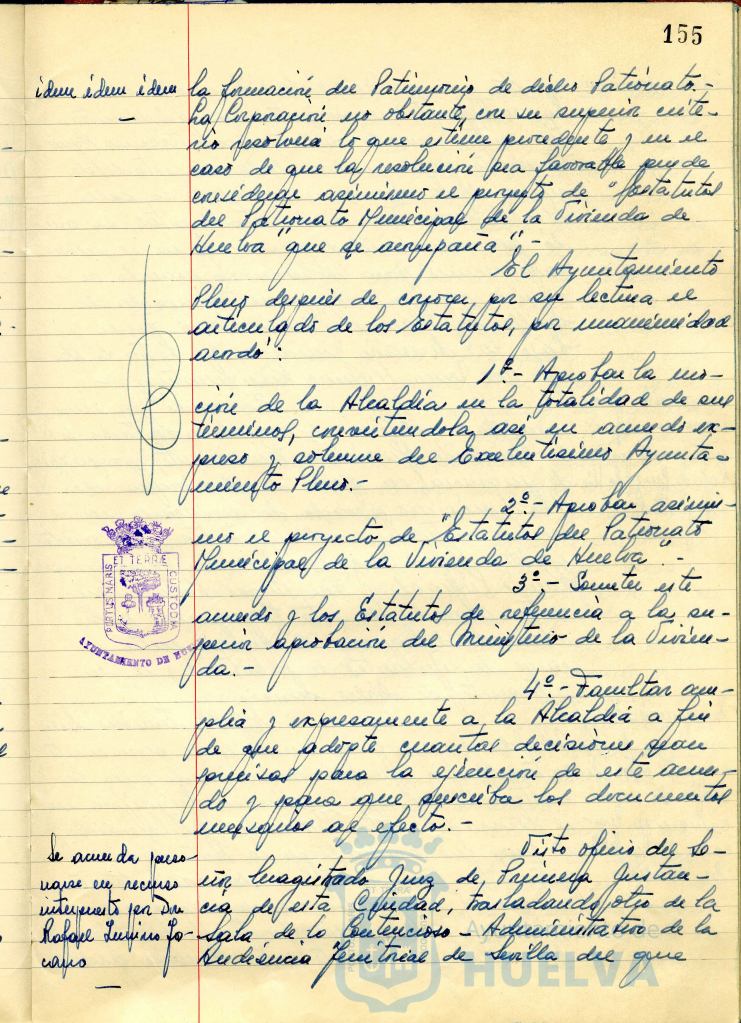 155
idem idem idem
la formación del Patrimonio de dicho Patronato.-
La Corporación no obstante, con su superior crite-
rio resolverá lo que estime procedente y en el
caso de que la resolución sea favorable puede
considerar asimismo el proyecto de "Estatutos
del Patronato Municipal de la Vivienda de
Huelva" que se acompaña".-
El Ayuntamiento
Pleno después de conocer por su lectura el
articulado de los Estatutos, por unanimidad
acordó:
1º.- Aprobar la mo-
ción de la Alcaldía en la totalidad de sus
términos, convirtiendola así en acuerdo ex-
preso y solemne del Excelentísimo Ayunta-
miento Pleno.-
2º.- Aprobar asimis-
mo el proyecto de "Estatutos del Patronato
Municipal de la Vivienda de Huelva".-
3º.- Someter este
acuerdo y los Estatutos de referencia a la su-
perior aprobación del Ministerio de la Vivien-
da.-
4º.- Facultar am-
plia y expresamente a la Alcaldía a fin
de que adopte cuantas decisiones sean
precisas para la ejecución de este acuer-
do y para que suscriba los documentos
necesarios al efecto.-
PORTUS MARIS ET TERRÆ CUSTODIA
AYUNTAMIENTO DE HUE
Se acuerda perso-
narse en recurso
interpuesto por Don
Rafael
Visto oficio del Se-
ñor Magistrado Juez de Primera Instan-
cia de esta Ciudad, trasladando otro de la
Sala de lo Contencioso-Administrativo de la
Audiencia Territorial de Sevilla del que
HUELVA